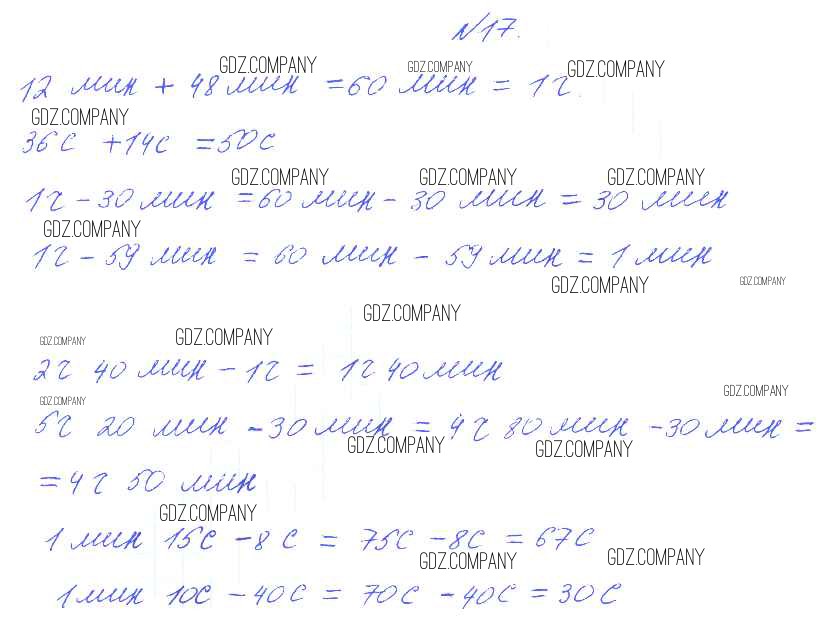 №17.
GDZ.COMPANY GDZ.COMPANY GDZ.COMPANY
12 мин + 48 мин = 60 мин = 1ч.
GDZ.COMPANY
36с + 14с = 50с
GDZ.COMPANY GDZ.COMPANY GDZ.COMPANY
1ч - 30 мин = 60 мин - 30 мин = 30 мин
GDZ.COMPANY
1ч - 59 мин = 60 мин - 59 мин = 1 мин
GDZ.COMPANY GDZ.COMPANY
GDZ.COMPANY
GDZ.COMPANY GDZ.COMPANY
2ч 40 мин - 1ч = 1ч 40 мин
GDZ.COMPANY GDZ.COMPANY
5ч 20 мин - 30 мин = 4ч 80 мин - 30 мин =
GDZ.COMPANY GDZ.COMPANY
= 4ч 50 мин
GDZ.COMPANY
1 мин 15с - 8с = 75с - 8с = 67с
GDZ.COMPANY GDZ.COMPANY
1 мин 10с - 40с = 70с - 40с = 30с